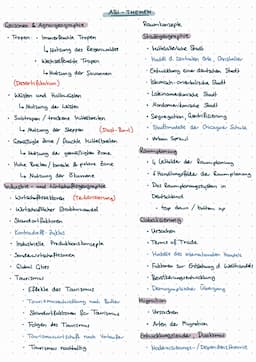 ABI - THEMEN
Geozonen & Agrargeographie
• Tropen : • Immerfeuchte Tropen
↳ Nutzung des Regenwaldes
• Wechselfeuchte Tropen
↳ Nutzung der Savannen
(Desertifikation)
• Wüsten und Halbwüsten
↳ Nutzung der Wüsten
• Subtropen / trockene Mittelbreiten
↳ Nutzung der Steppen (Dust-Bowl)
• Gemäßigte Zone / feuchte Mittelbreiten
↳ Nutzung der gemäßigten Zone
• Hohe Breiten / boreale & polare Zone
↳ Nutzung der
Industrie - und Wirtschaftsgeographie
• Wirtschaftssektoren (Tertiärisierung)
• Wirtschaftlicher Strukturwandel
• Standortfaktoren
• Kontradieff- Zyklus
• Industrielle Produktionskonzepte
• Sonderwirtschaftszonen
• Global Cities
• Tourismus
• Effekte des Tourismus
• Tourismusentwicklung nach Butler
• Standortfaktoren für Tourismus
• Folgen des Tourismus
• Tourismuswirtschaft nach Vorlaufer
• Tourismus nachhaltig
Raumkonzepte
Stadtgeographie
• Mittelalterliche Stadt
• Modell d. zentralen Orte, Christaller
• Entwicklung einer deutschen Stadt
• Islamisch-orientalische Stadt
• Lateinamerikanische Stadt
• Nordamerikanische Stadt
• Segregation, Gentrifizierung
• Stadtmodelle der Chicagoer Schule
• Urban Sprawl
Raumplanung
• 4 Leitbilder der Raumplanung
• 6 Handlungsfelder der Raumplanung
• Das Raumplanungssystem in
Deutschland
- top down / bottom up
Globalisierung
• Ursachen
• Terms of Trade
• Modelle des internationalen Handels
• Faktoren zur Entstehung d. Welthandels
• Bevölkerungsentwicklung
• Demographischer Übergang
Migration
• Ursachen
• Arten der Migration
Entwicklungsländer, Dualismus
• Modernisierungs- / Dependenztheorie